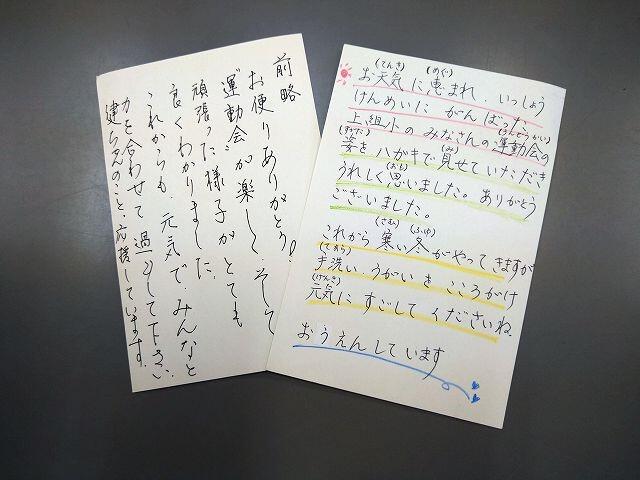 前略
お便りありがとう!
運動会が楽しく、そして
頑張った様子がとても
良くわかりました。
これからも、元気で、みんなと
力を合わせて過ごして下さい。
のこと、応援しています。
(てんき) (めぐ)
お天気に恵まれ、いっしょう
けんめいに がんばった、
(うんどうかい)
上組小の みなさんの運動会の
(すがた) (み)
姿をハガキで見せていただき
(おも)
うれしく思いました。ありがとう
ございました。
(さむ) (ふゆ)
これから寒い冬がやってきますが
(てあら)
手洗い、うがいを こころがけ
(げんき)
元気に すごして くださいね
おうえんしています